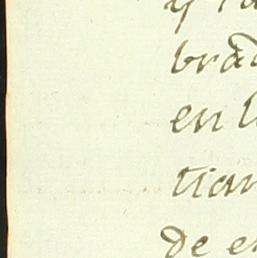 y
bra
en l
tian
de e